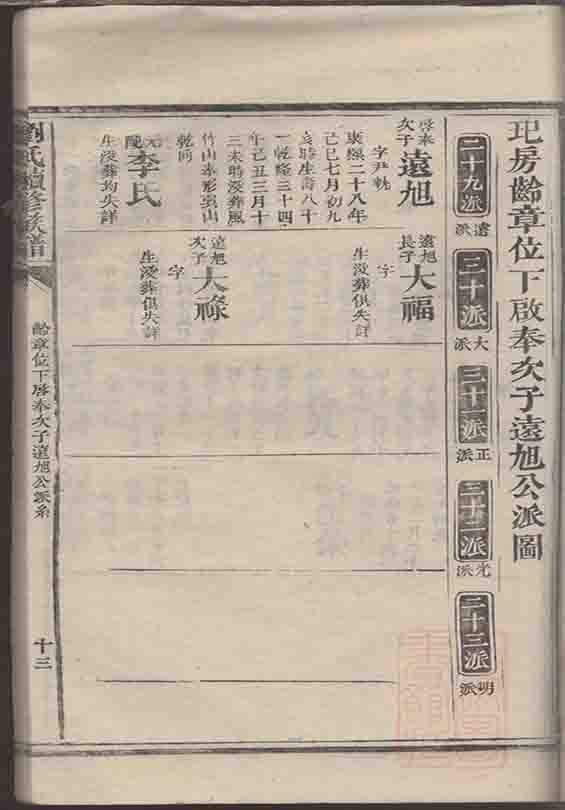 玘房齡章位下啟奉次子遠旭公派圖
二十九派
遠派
三十派
大派
三十一派
正派
三十二派
光派
三十三派
明派
啓奉
次子
遠旭
字尹軌
康熙二十八年
己巳七月初九
亥時生壽八十
一乾隆三十四
年己丑三月十
三未時沒葬鳳
竹山本形艮山
乾向
元配
李氏
生沒葬均失詳
遠旭
長子
大福
字
生沒葬俱失詳
遠旭
次子
大祿
字
生沒葬俱失詳
劉氏續修族譜
齡章位下啓奉次子遠旭公派系
十三